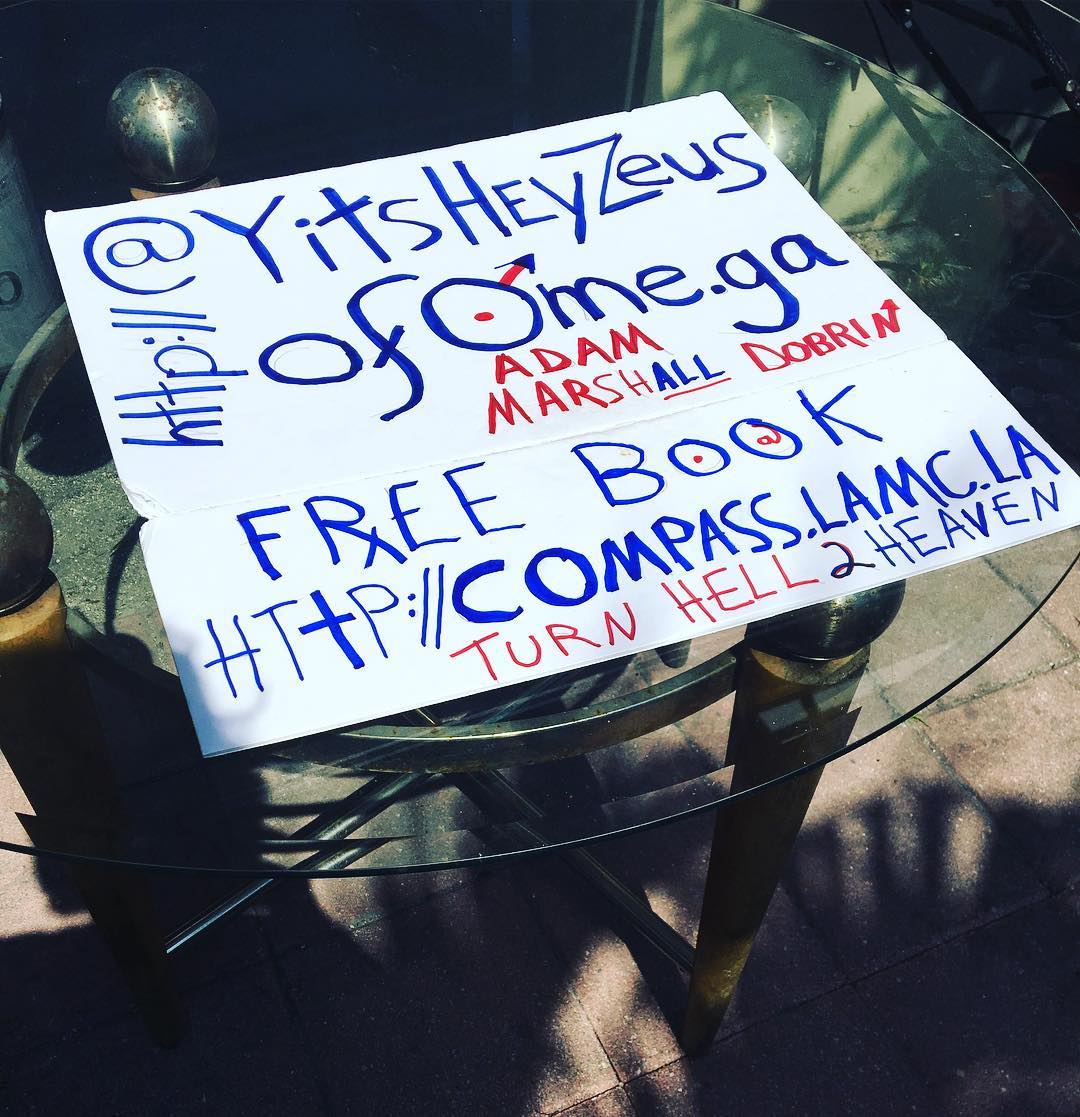 @YitsHEYZeus
http://
ofOme.ga
ADAM
MARSHALL DOBRIN
FREE BOOK
HTTP://COMPASS.LAMC.LA
TURN HELL 2 HEAVEN